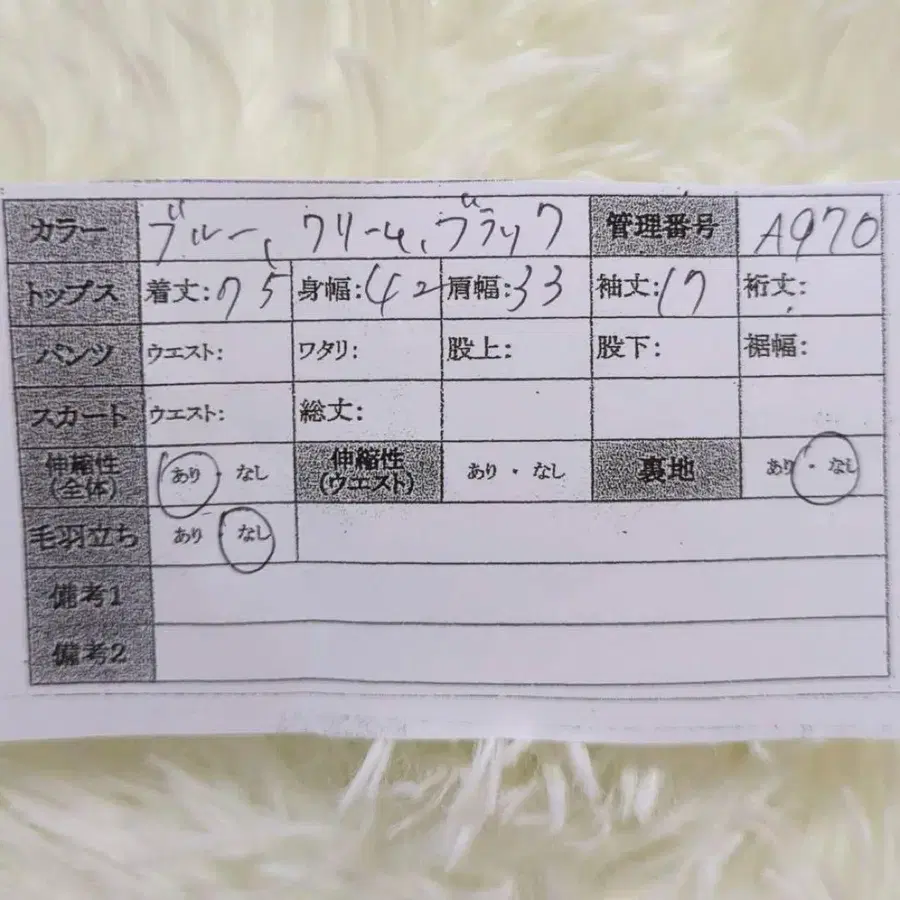 カラー ブルー、クリーム、ブラック 管理番号 A970
トップス 着丈:75 身幅:42 肩幅:33 袖丈:17 裄丈:
パンツ ウエスト: ワタリ: 股上: 股下: 裾幅:
スカート ウエスト: 総丈:
伸縮性(全体) あり・なし 伸縮性(ウエスト) あり・なし 裏地 あり・なし
毛羽立ち あり・なし
備考1
備考2